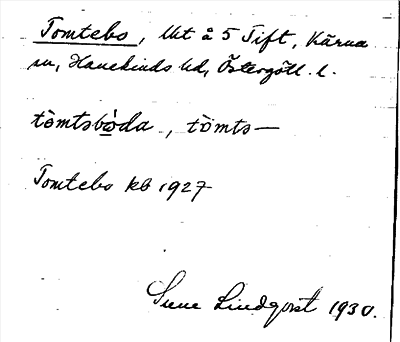 Tomtebo, lht å 5 Tift, Kärna
sn, Hanekinds hd, Östergötl. l.
tòmtsbóda, tòmts—
Tomtebo kb 1927
Sune Lindqvist 1930.